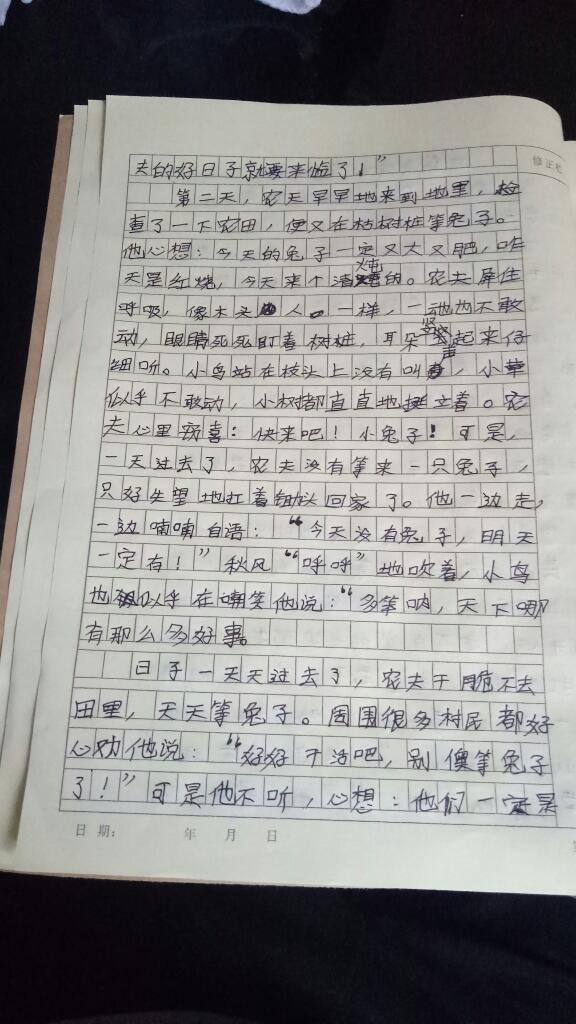 去的好日子就要来临了！”
修正栏
第二天，农夫早早地来到地里，检
查了一下农田，便又在枯树桩等兔子。
他心想：今天的兔子一定又大又肥，昨
天是红烧，今天来个清炖的。农夫屏住
呼吸，像木头人一样，一动也不敢
动，眼睛死死盯着树桩，耳朵竖起来仔
细听。小鸟站在枝头上没有叫声，小草
似乎不敢动，小树都直直地挺立着。农
夫心里窃喜：快来吧！小兔子！可是，
一天过去了，农夫没有等来一只兔子，
只好失望地扛着锄头回家了。他一边走，
一边喃喃自语：“今天没有兔子，明天
一定有！”秋风“呼呼”地吹着，小鸟
也似乎在嘲笑他说：“多笨呐，天下哪
有那么多好事。
日子一天天过去了，农夫干脆不去
田里，天天等兔子。周围很多村民都好
心劝他说：“好好干活吧，别傻等兔子
了！”可是他不听，心想：他们一定是
日期： 年 月 日